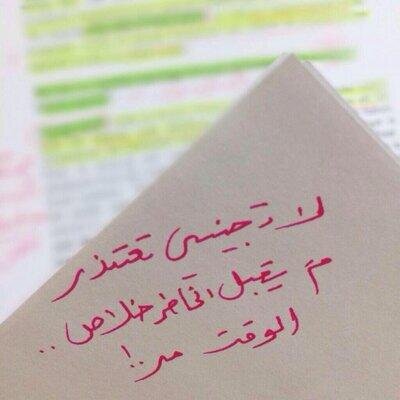 لا تجيني تعتذر
مَ يقبل الخاطر خلاص ..
الوقت مر .. !